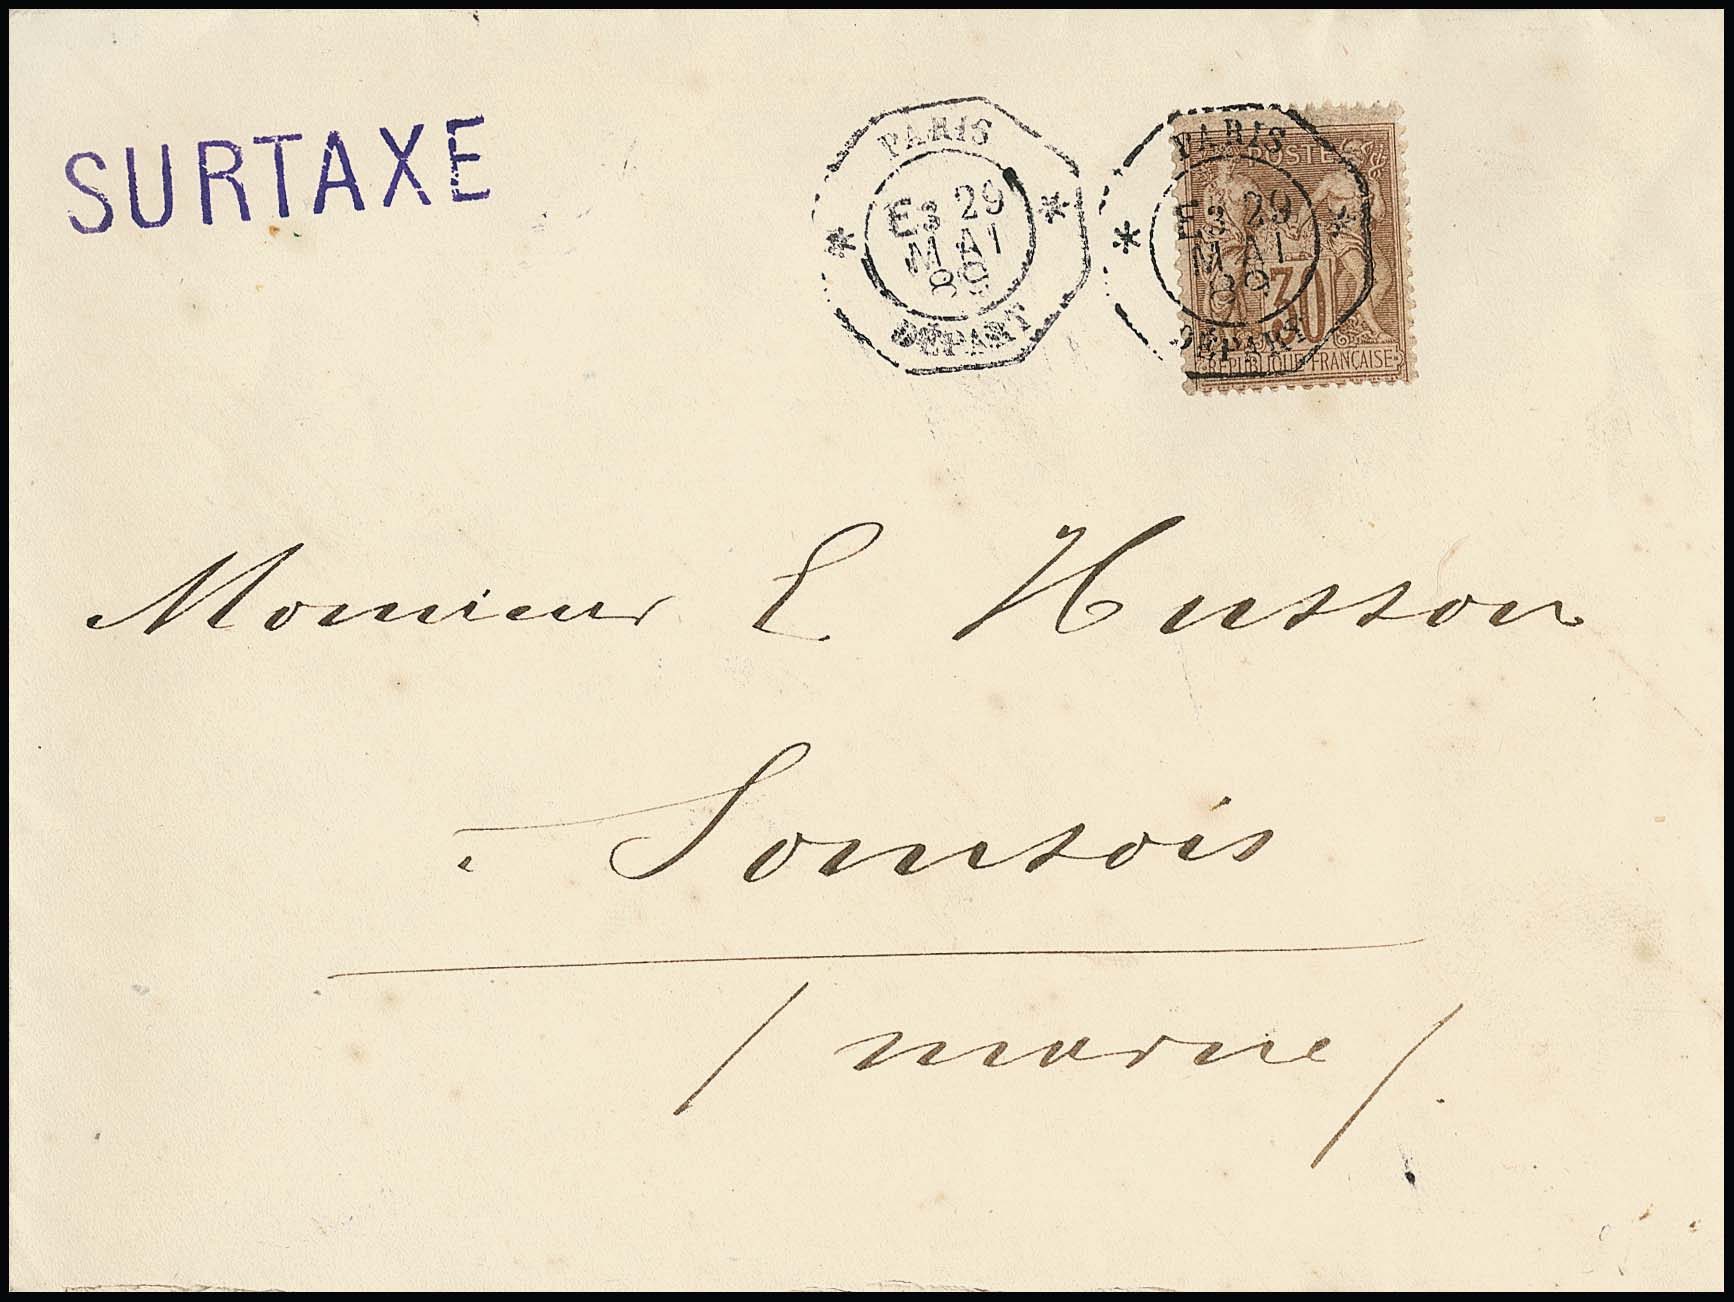 SURTAXE
PARIS
E3 29
MAI
89
DÉPART
PARIS
E3 29
MAI
89
DÉPART
POSTE
30
RÉPUBLIQUE FRANÇAISE
Monsieur E Husson
à Somsois
/ marne /.